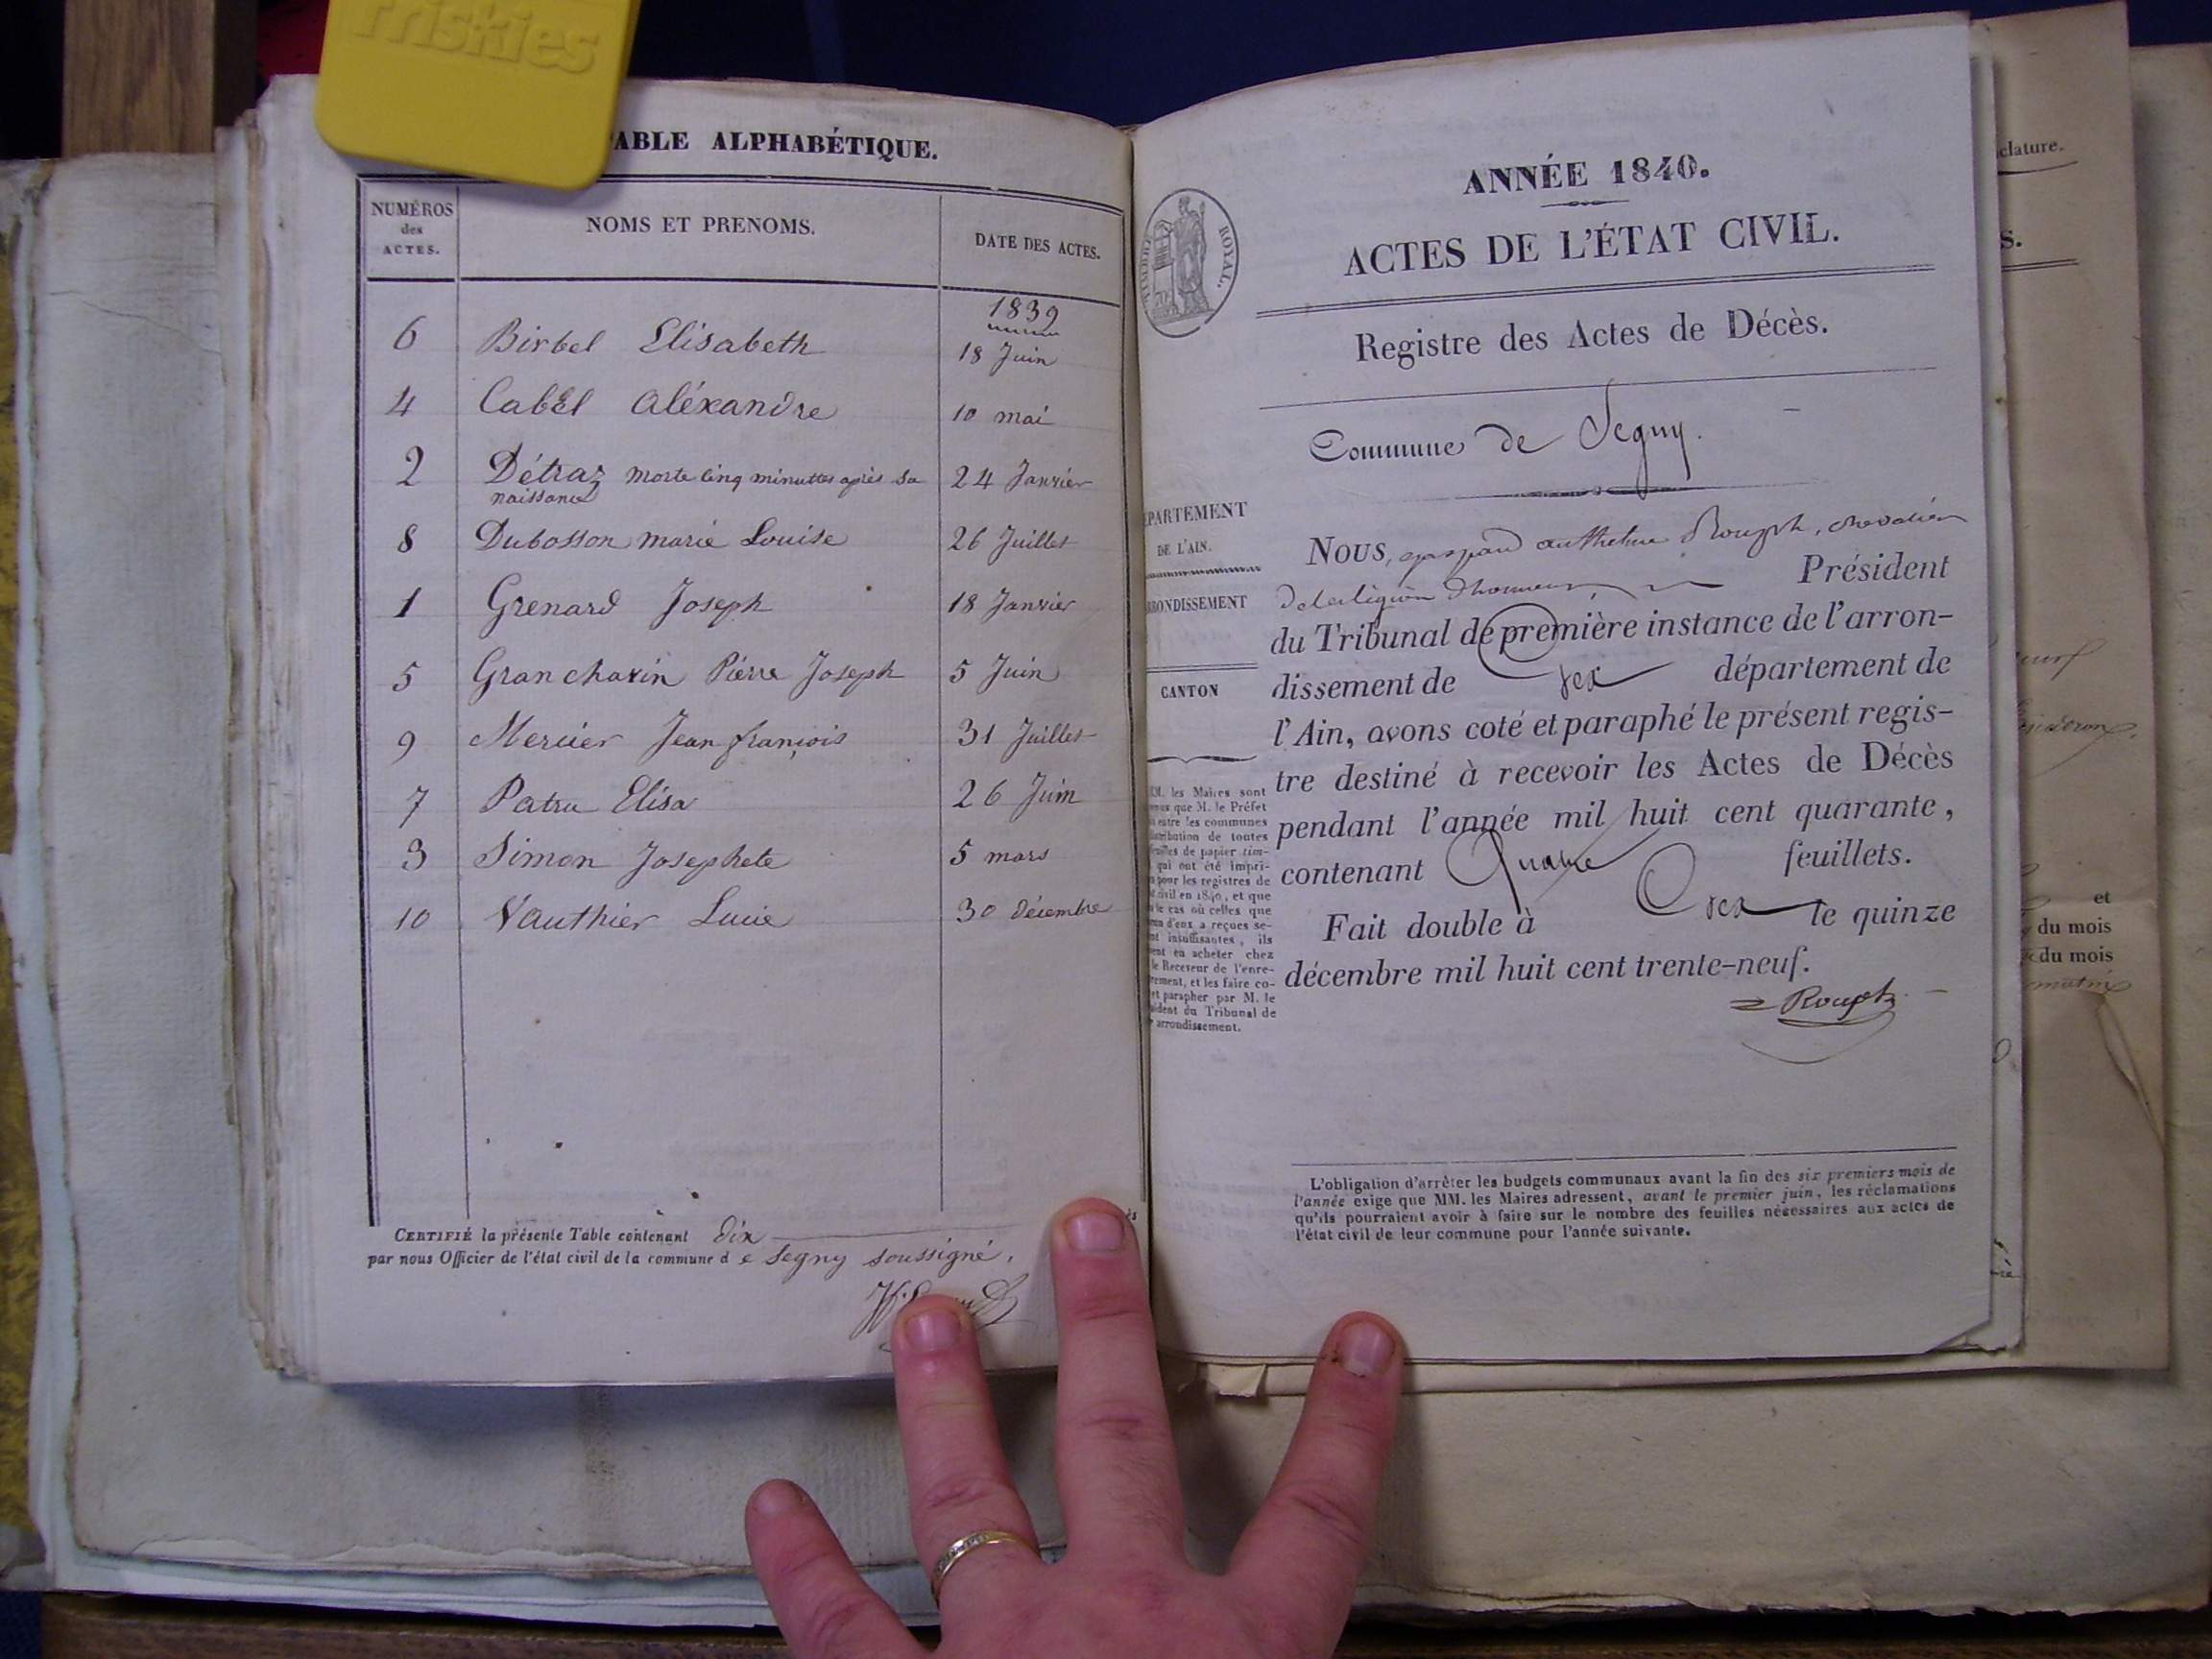 friskies
TABLE ALPHABÉTIQUE.
NUMÉROS
des
ACTES.
NOMS ET PRENOMS.
DATE DES ACTES.
1839
6 Birbel Elisabeth 18 Juin
4 Cabël Aléxandre 10 mai
2 Détraz morte cinq minuttes après sa 24 Janvier
naissance
8 Dubosson marie Louise 26 Juillet
1 Grenard Joseph 18 Janvier
5 Granchavin Pierre Joseph 5 Juin
9 Mercier Jean françois 31 Juillet
7 Patru Elisa 26 Juin
3 Simon Josephete 5 mars
10 Vauthier Lucie 30 décembre
CERTIFIÉ la présente Table contenant dix
par nous Officier de l'état civil de la commune d e Segny soussigné.
ANNÉE 1840.
ACTES DE L'ÉTAT CIVIL.
ROYAL.
Registre des Actes de Décès.
Commune de Segny.
PARTEMENT
DE L'AIN.
RONDISSEMENT
CANTON
MM. les Maires sont
que M. le Préfet
entre les communes
distribution de toutes
feuilles de papier tim-
qui ont été impri-
pour les registres de
civil en 1840, et que
le cas où celles que
d'eux a reçues se-
insuffisantes, ils
en acheter chez
le Receveur de l'enre-
et les faire co-
et parapher par M. le
du Tribunal de
arrondissement.
NOUS, gaspard anthelme Rouph, chevalier
de la légion d'honneur, Président
du Tribunal de première instance de l'arron-
dissement de Gex département de
l'Ain, avons coté et paraphé le présent regis-
tre destiné à recevoir les Actes de Décès
pendant l'année mil huit cent quarante,
contenant quatre feuillets.
Fait double à Gex le quinze
décembre mil huit cent trente-neuf.
L'obligation d'arrêter les budgets communaux avant la fin des six premiers mois de
l'année exige que MM. les Maires adressent, avant le premier juin, les réclamations
qu'ils pourraient avoir à faire sur le nombre des feuilles nécessaires aux actes de
l'état civil de leur commune pour l'année suivante.
clature.
s.
et
du mois
du mois